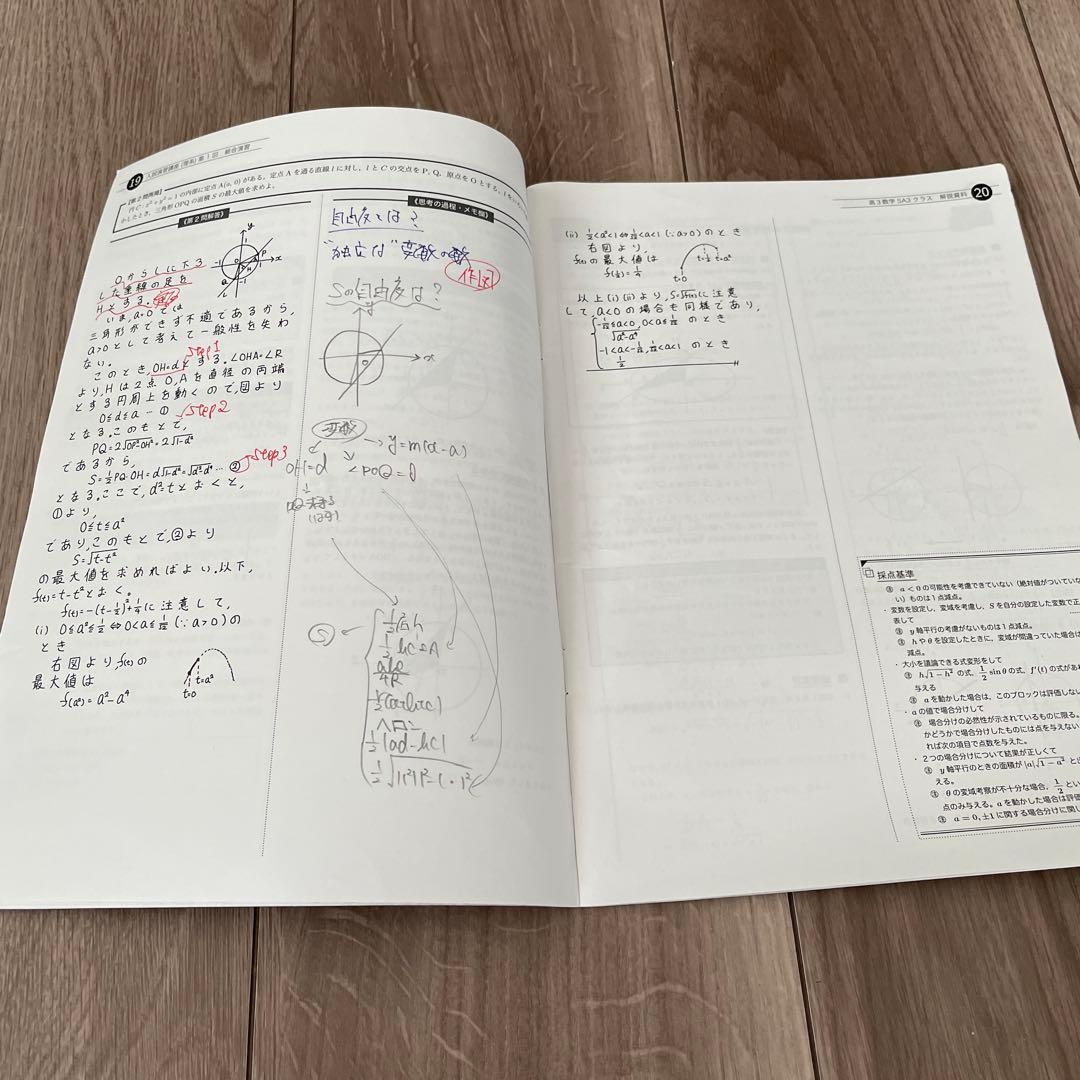 19 入試演習講座(理系)第1回 総合演習
【第2問再掲】
円C:x²+y²=1の内部に定点A(a, 0)がある。定点Aを通る直線lに対し、lとCの交点をP, Q、原点をOとする。
かしたとき、三角形OPQの面積Sの最大値を求めよ。
《第2問解答》
Oからlに下ろ
した垂線の足を
Hとする。
いま,a=0では
三角形ができず不適であるから,
a>0として考えて一般性を失わ
ない。
Step1
このとき,OH=dとする。∠OHA=∠R
より,Hは2点O,Aを直径の両端
とする円周上を動くので,図より
0≦d≦a…①
となる。このもとで,
Step2
PQ=2√OP²-OH²=2√1-d²
であるから,
Step3
S=1/2PQ・OH=d√1-d²=√d²-d⁴…②
となる。ここで,d²=tとおくと,
①より,
0≦t≦a²
であり,このもとで,②より
S=√t-t²
の最大値を求めればよい。以下,
f(t)=t-t²とおく。
f(t)=-(t-1/2)²+1/4に注意して,
(i) 0≦a²≦1/2⇔0<a≦1/√2(∵a>0)の
とき
右図より,f(t)の
最大値は
f(a²)=a²-a⁴
t=a²
t=0
y
x
1
-1
《思考の過程・メモ欄》
自由度とは?
"独立な"変数の数
作図
Sの自由度は?
x
変数
→y=m(x-a)
OH=d
∠POQ=θ
S
1/2底h
1/2bcsinA
abc/4R
1/2r(a+b+c)
ヘロン
1/2|ad-bc|
高3数学SA3クラス 解説資料 20
(ii) 1/2<a²<1⇔1/√2<a<1(∵a>0)のとき
右図より,
f(t)の最大値は
f(1/2)=1/4
t=1/2 t=a²
t=0
以上(i)(ii)より,S=√f(t)に注意
して,a<0の場合も同様であり,
-1/√2≦a<0,0<a≦1/√2のとき
√a²-a⁴
-1<a<-1/√2,1/√2<a<1のとき
1/2
採点基準
③ a<0の可能性を考慮できていない(絶対値がついていな
い)ものは1点減点。
・変数を設定し、変域を考慮し、Sを自分の設定した変数で正
表して
③ y軸平行の考慮がないものは1点減点。
③ hやθを設定したときに、変域が間違っていた場合は
減点。
・大小を議論できる式変形をして
③ h√1-h²の式、1/2 sinθの式、f'(t)の式があ
与える
③ aを動かした場合は、このブロックは評価しない
・aの値で場合分けして
③ 場合分けの必然性が示されているものに限る。
かどうかで場合分けしたものには点を与えない
れば次の項目で点数を与えた。
・2つの場合分けについて結果が正しくて
③ y軸平行のときの面積が|a|√1-a²と
える。
③ θの変域考察が不十分な場合、1/2とい
点のみ与える。aを動かした場合は評価
③ a=0,±1に関する場合分けに関し